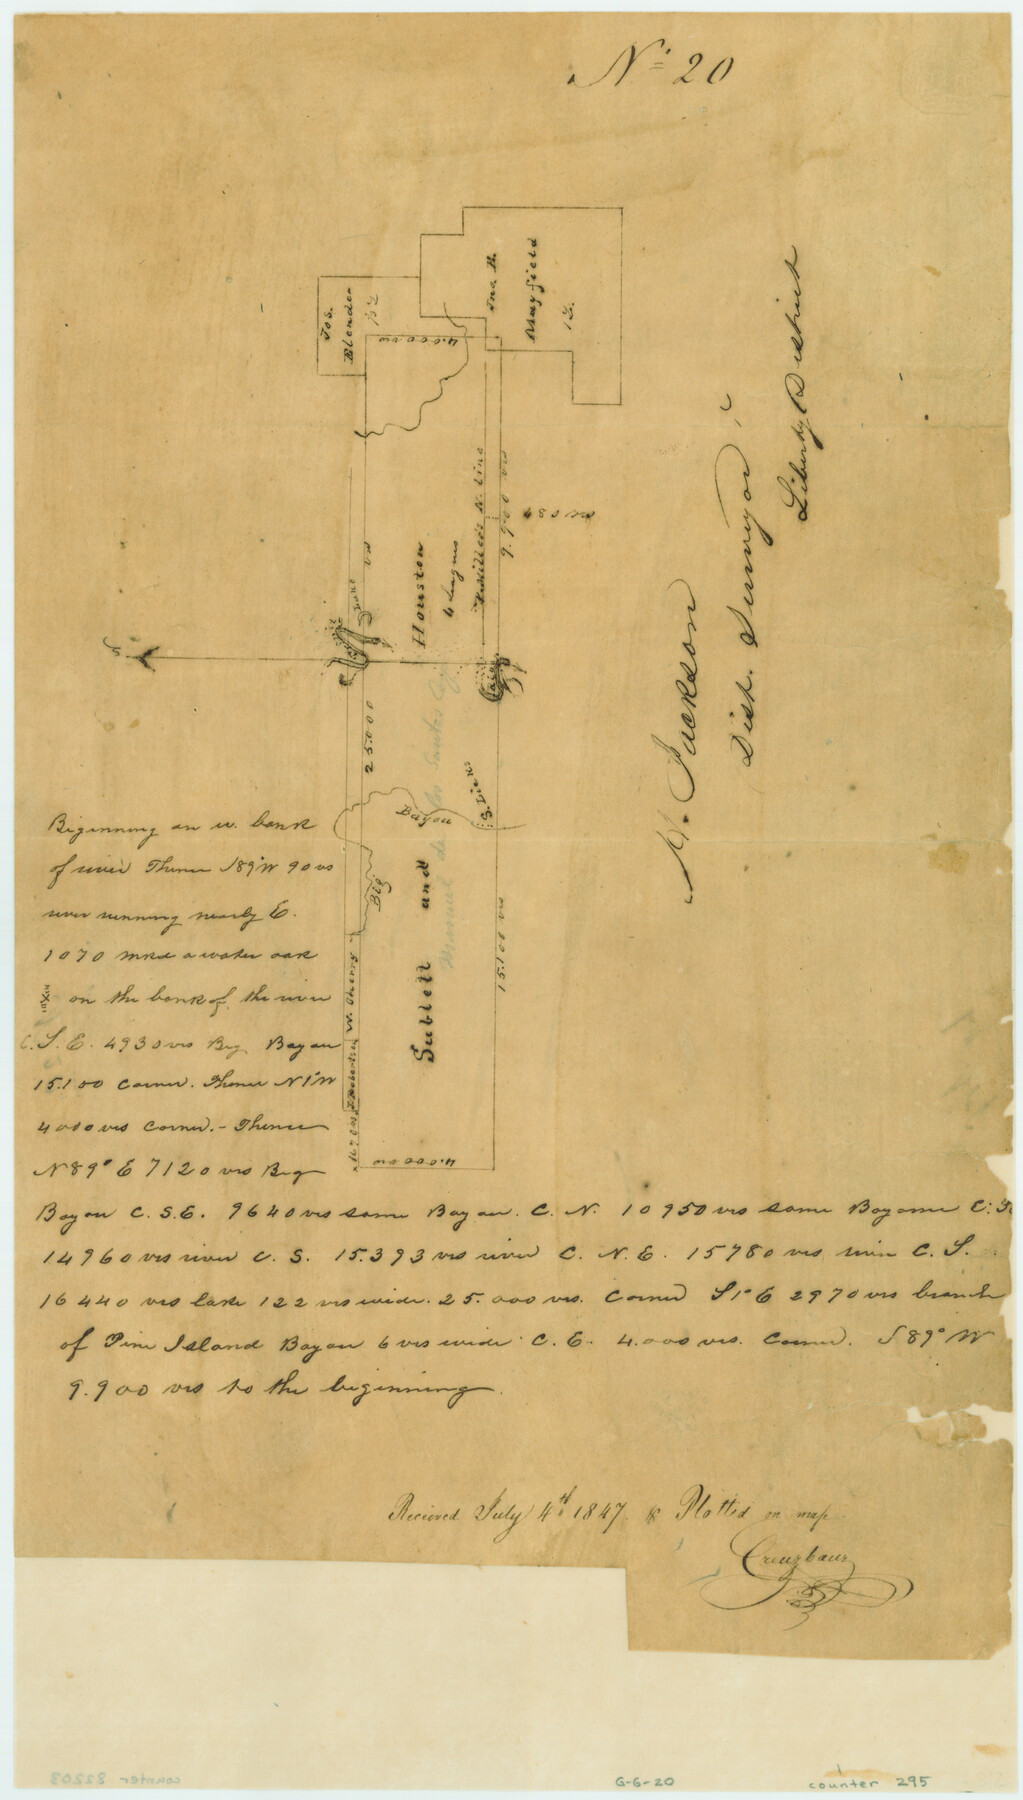 No 20
Jos.
Blender
½ L
4.000 vrs
Jno. B.
Mayfield
1 L.
Houston
4 Leagues
N. Line
9.900 vrs
480 vrs
vrs
25.000
Lake
Big
Bayou
S. Line
Sublett and
15.100 vrs
W. Cherry
4.000 vrs
W. Jackson
Dist. Surveyor
Liberty District
Beginning on w. bank
of river Thence S89°W 90 vs
river running nearly E.
1070 mkd a water oak
on the bank of the river
C. S. E. 4930 vrs Big Bayou
15.100 Corner. Thence N1°W
4000 vrs Corner.- Thence
N89° E 7120 vrs Big
Bayou C. S.E. 9640 vrs same Bayou. C. N. 10950 vrs same Bayou
14960 vrs river C. S. 15.393 vrs river C. N. E. 15780 vrs river C. S.
16440 vrs lake 122 vrs wide. 25.000 vrs. Corner S1°E 2970 vrs branch
of Pine Island Bayou 6 vrs wide C. E. 4.000 vrs. Corner. S89°W
9.900 vrs to the beginning.
Recieved July 4th 1847 & Plotted on map
Creuzbaur
counter 82203
G-6-20
counter 295